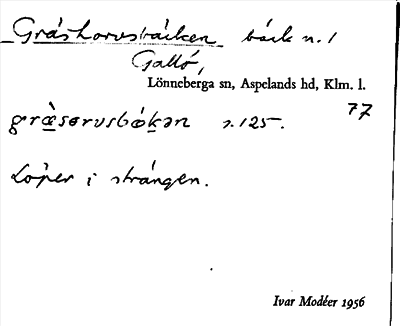 Gråshorvsbäcken bäck n. 1
Gallö,
Lönneberga sn, Aspelands hd, Klm. l.
77
gràsorvsbókən s. 125.
Löper i strången.
Ivar Modéer 1956